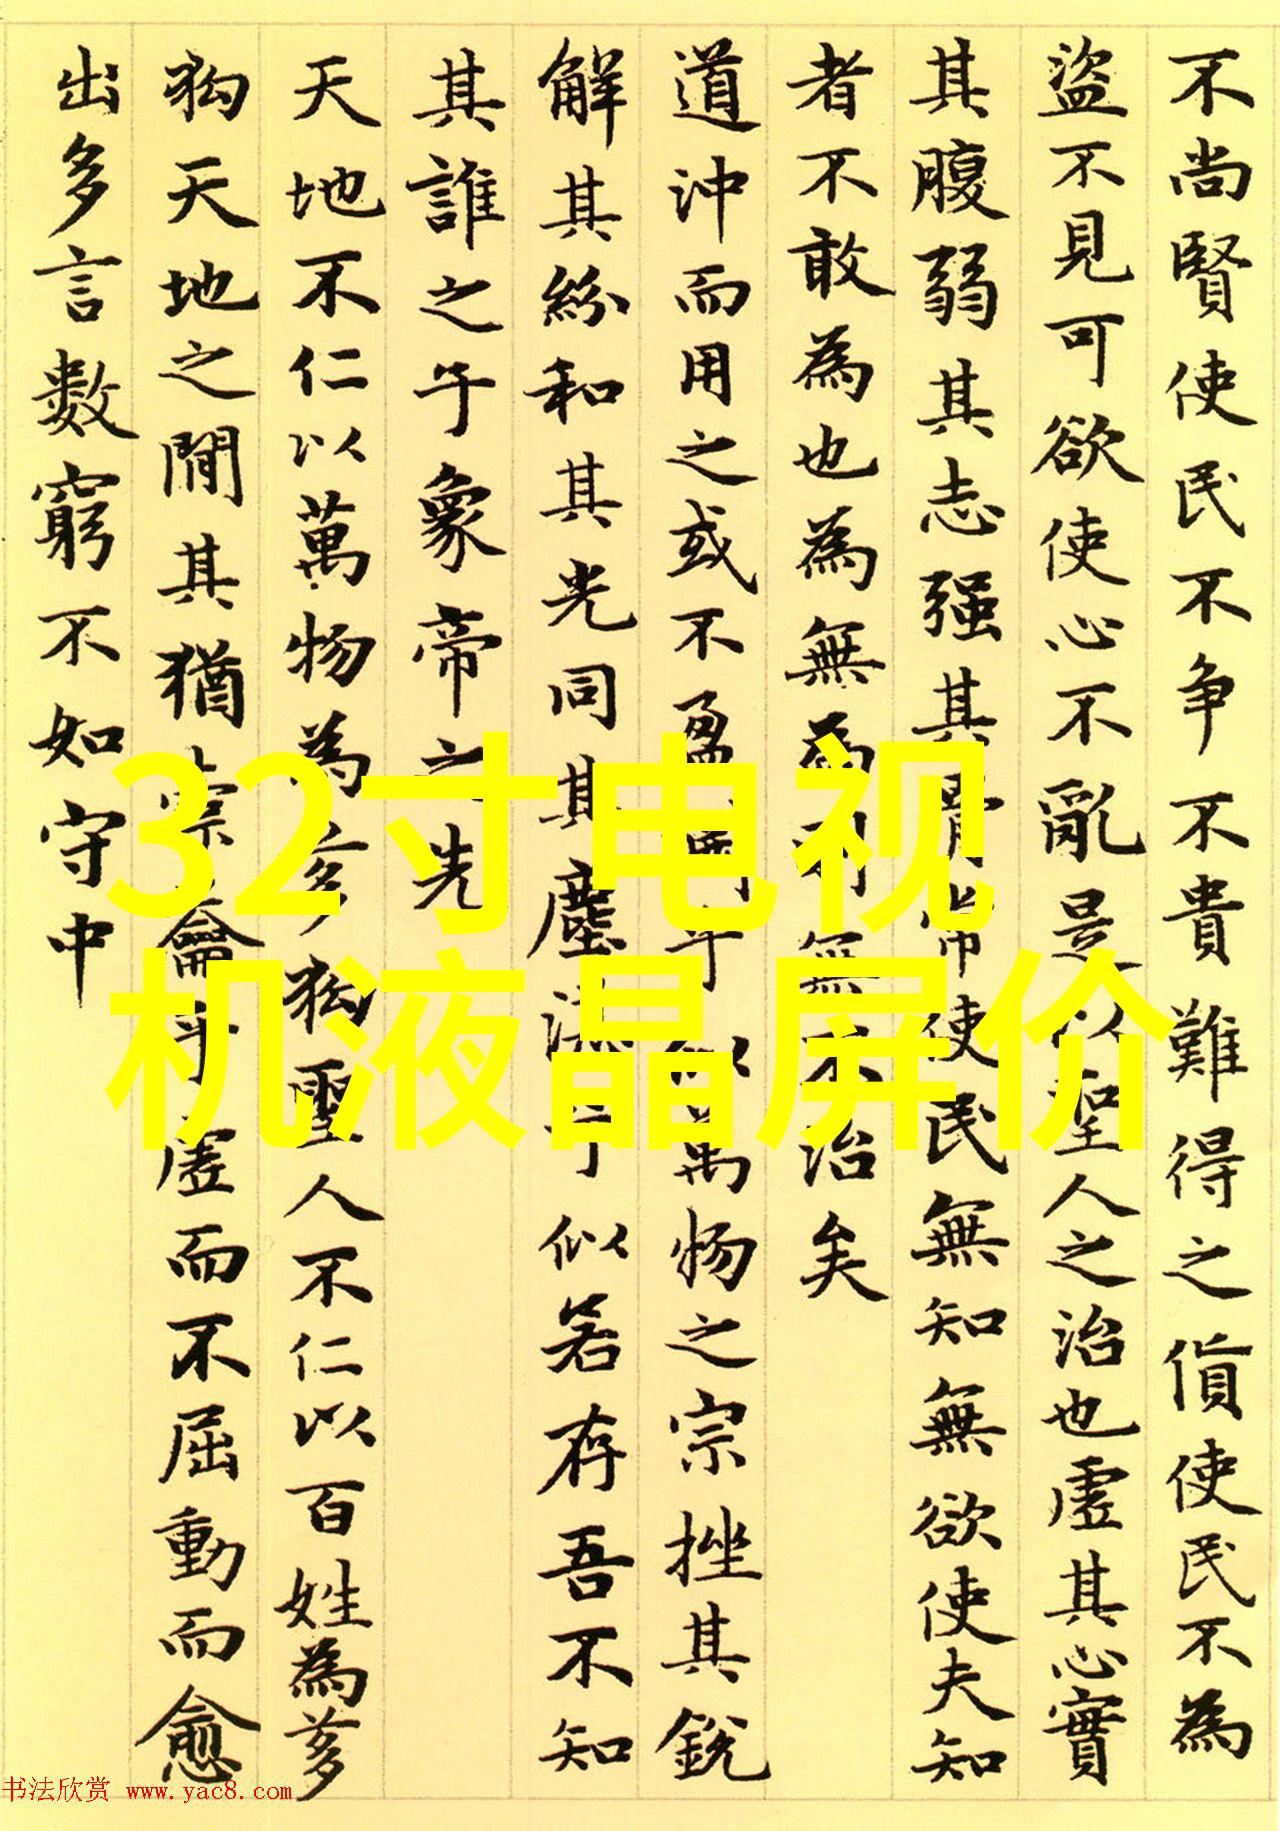 不尚賢使民不争不貴難得之貨使民不為
盜不見可欲使心不亂是以聖人之治也虛其心實
其腹弱其志强其骨常使民無知無欲使夫知
者不敢為也為無為則無不治矣
道沖而用之或不盈淵乎似萬物之宗挫其銳
解其紛和其光同其塵湛兮似若存吾不知
其誰之子象帝之先
天地不仁以萬物為芻狗聖人不仁以百姓為芻
狗天地之間其猶橐籥乎虛而不屈動而愈
出多言數窮不如守中
32寸电视
机液晶屏价
书法欣赏 www.yac8.com